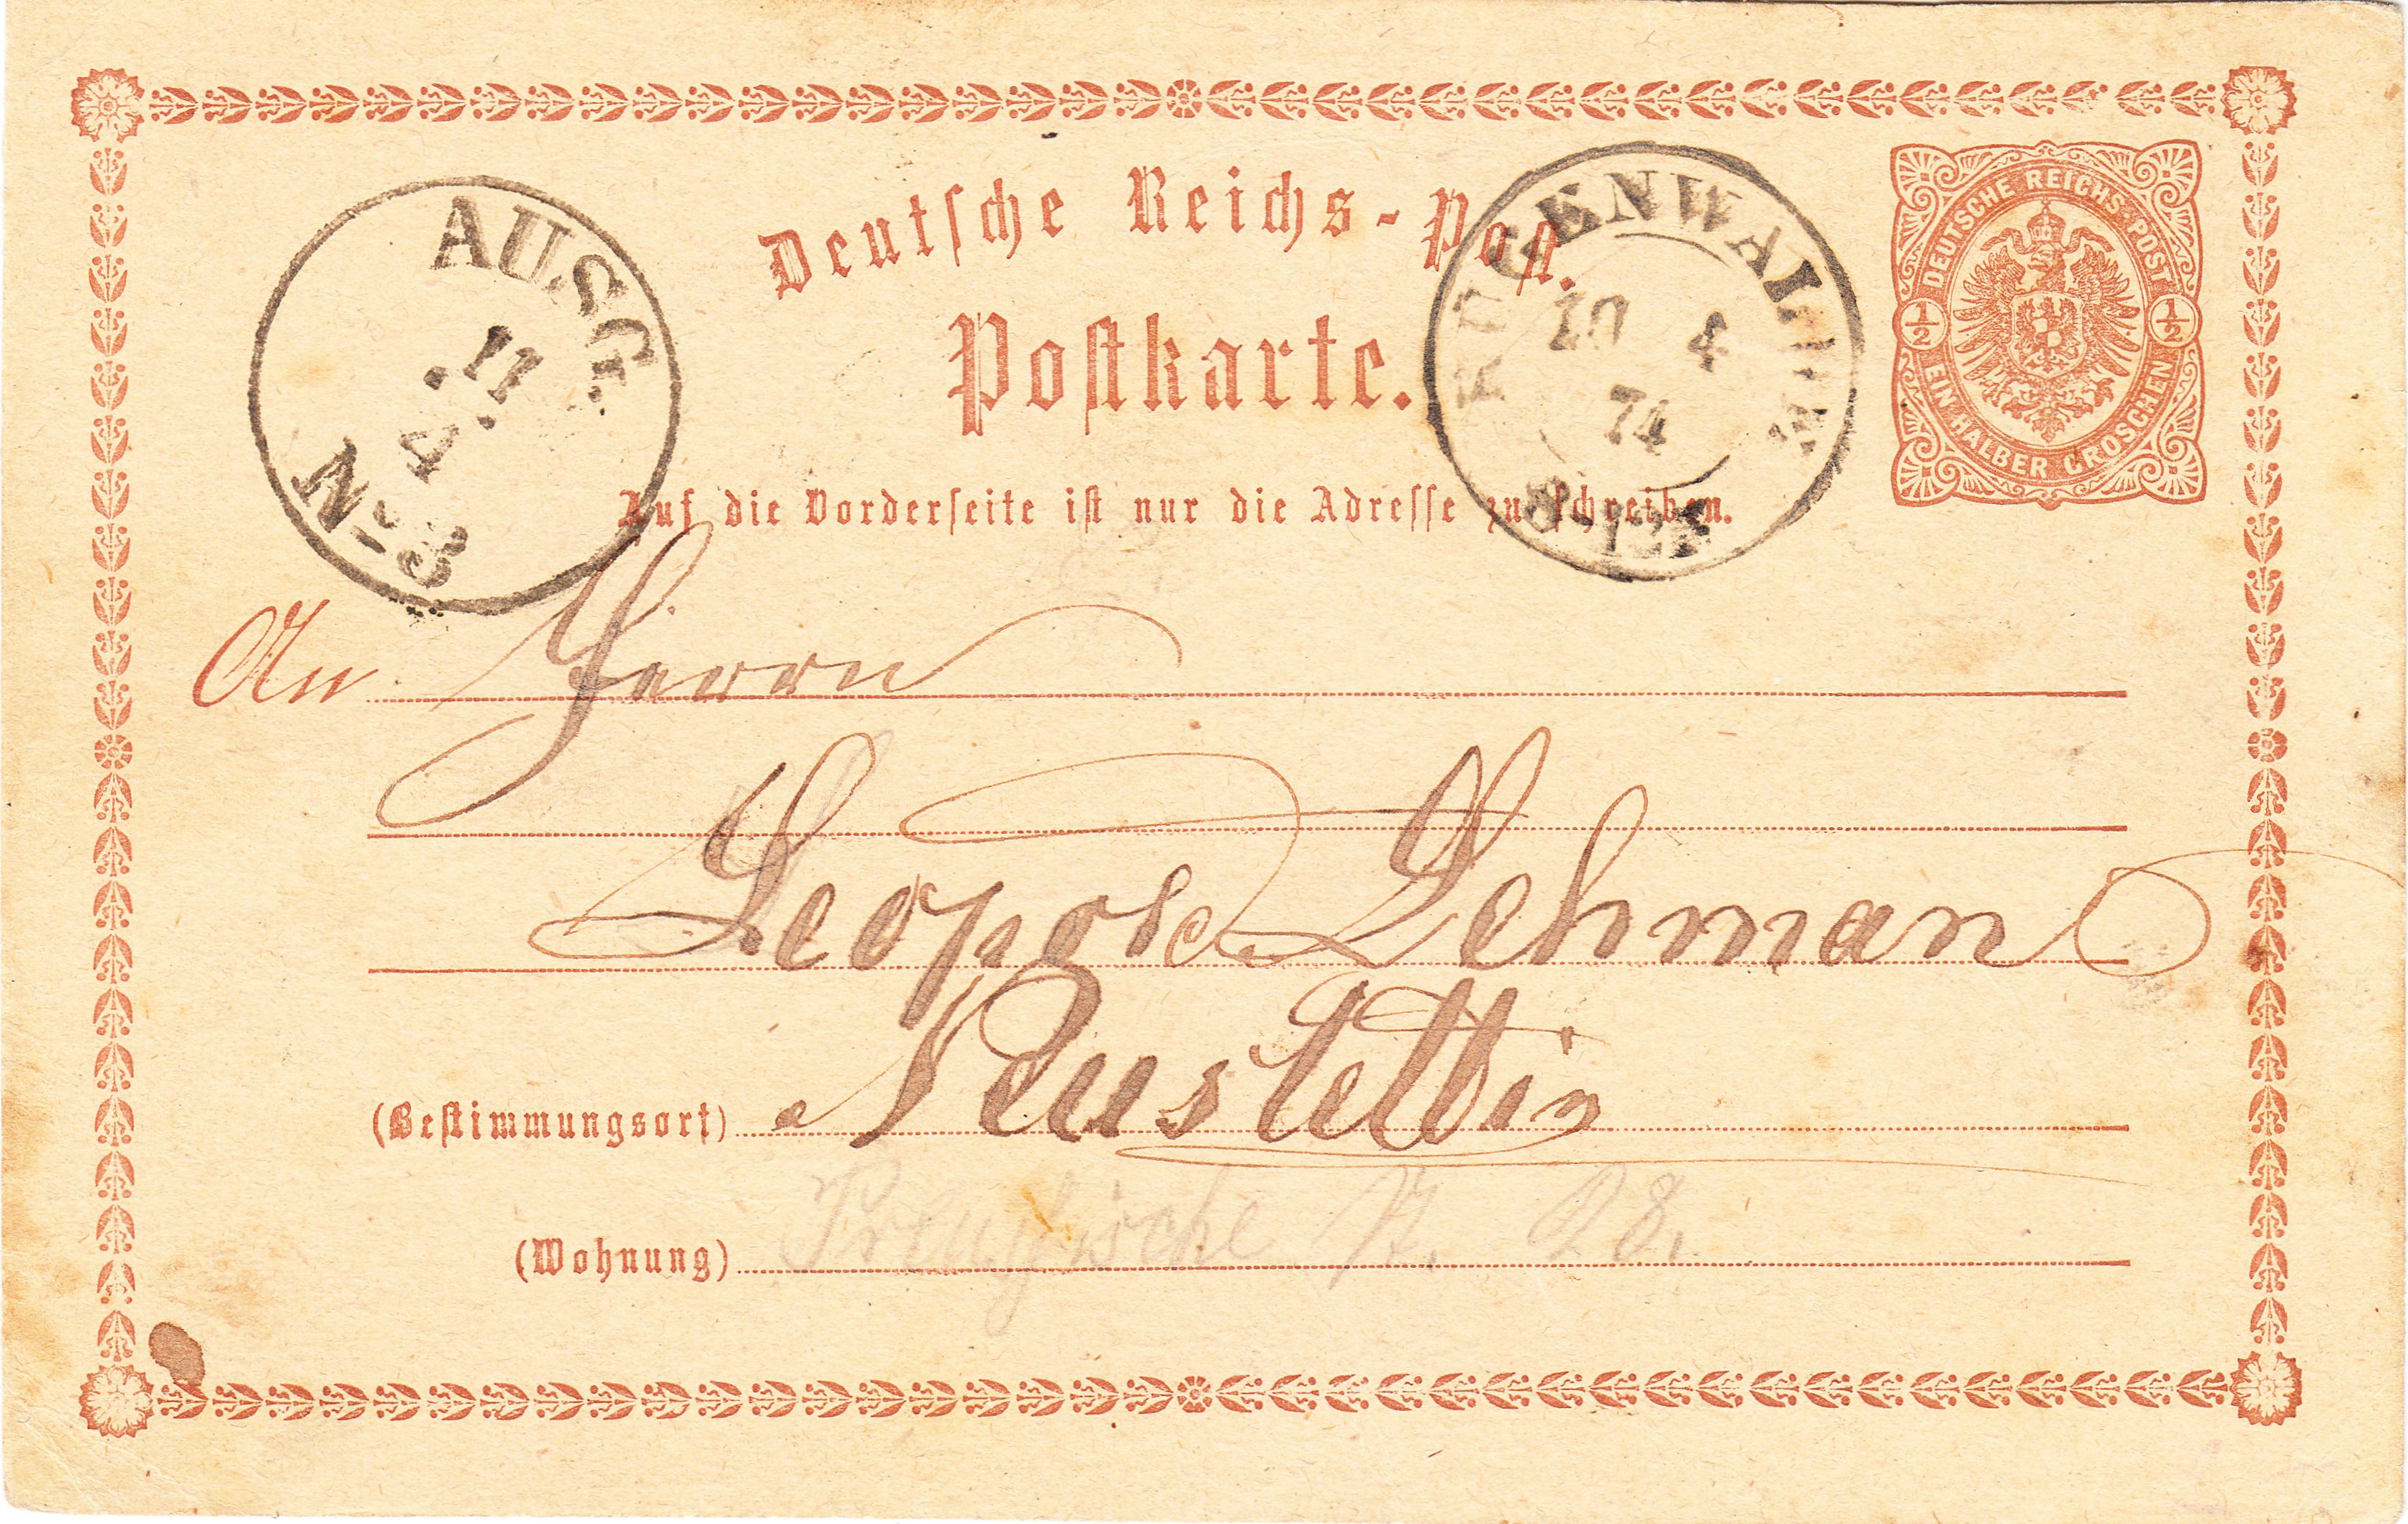 Deutsche Reichs-Post.
Postkarte.
Auf die Vorderseite ist nur die Adresse zu schreiben.
DEUTSCHE REICHS-POST
1/2 1/2
EIN HALBER GROSCHEN
AUSG.
11.
4.
N-3
RÜGENWALDE
10 4
74
An Herrn
Leopold Lehman
(Bestimmungsort) Neustettin
(Wohnung) Preußische 28.